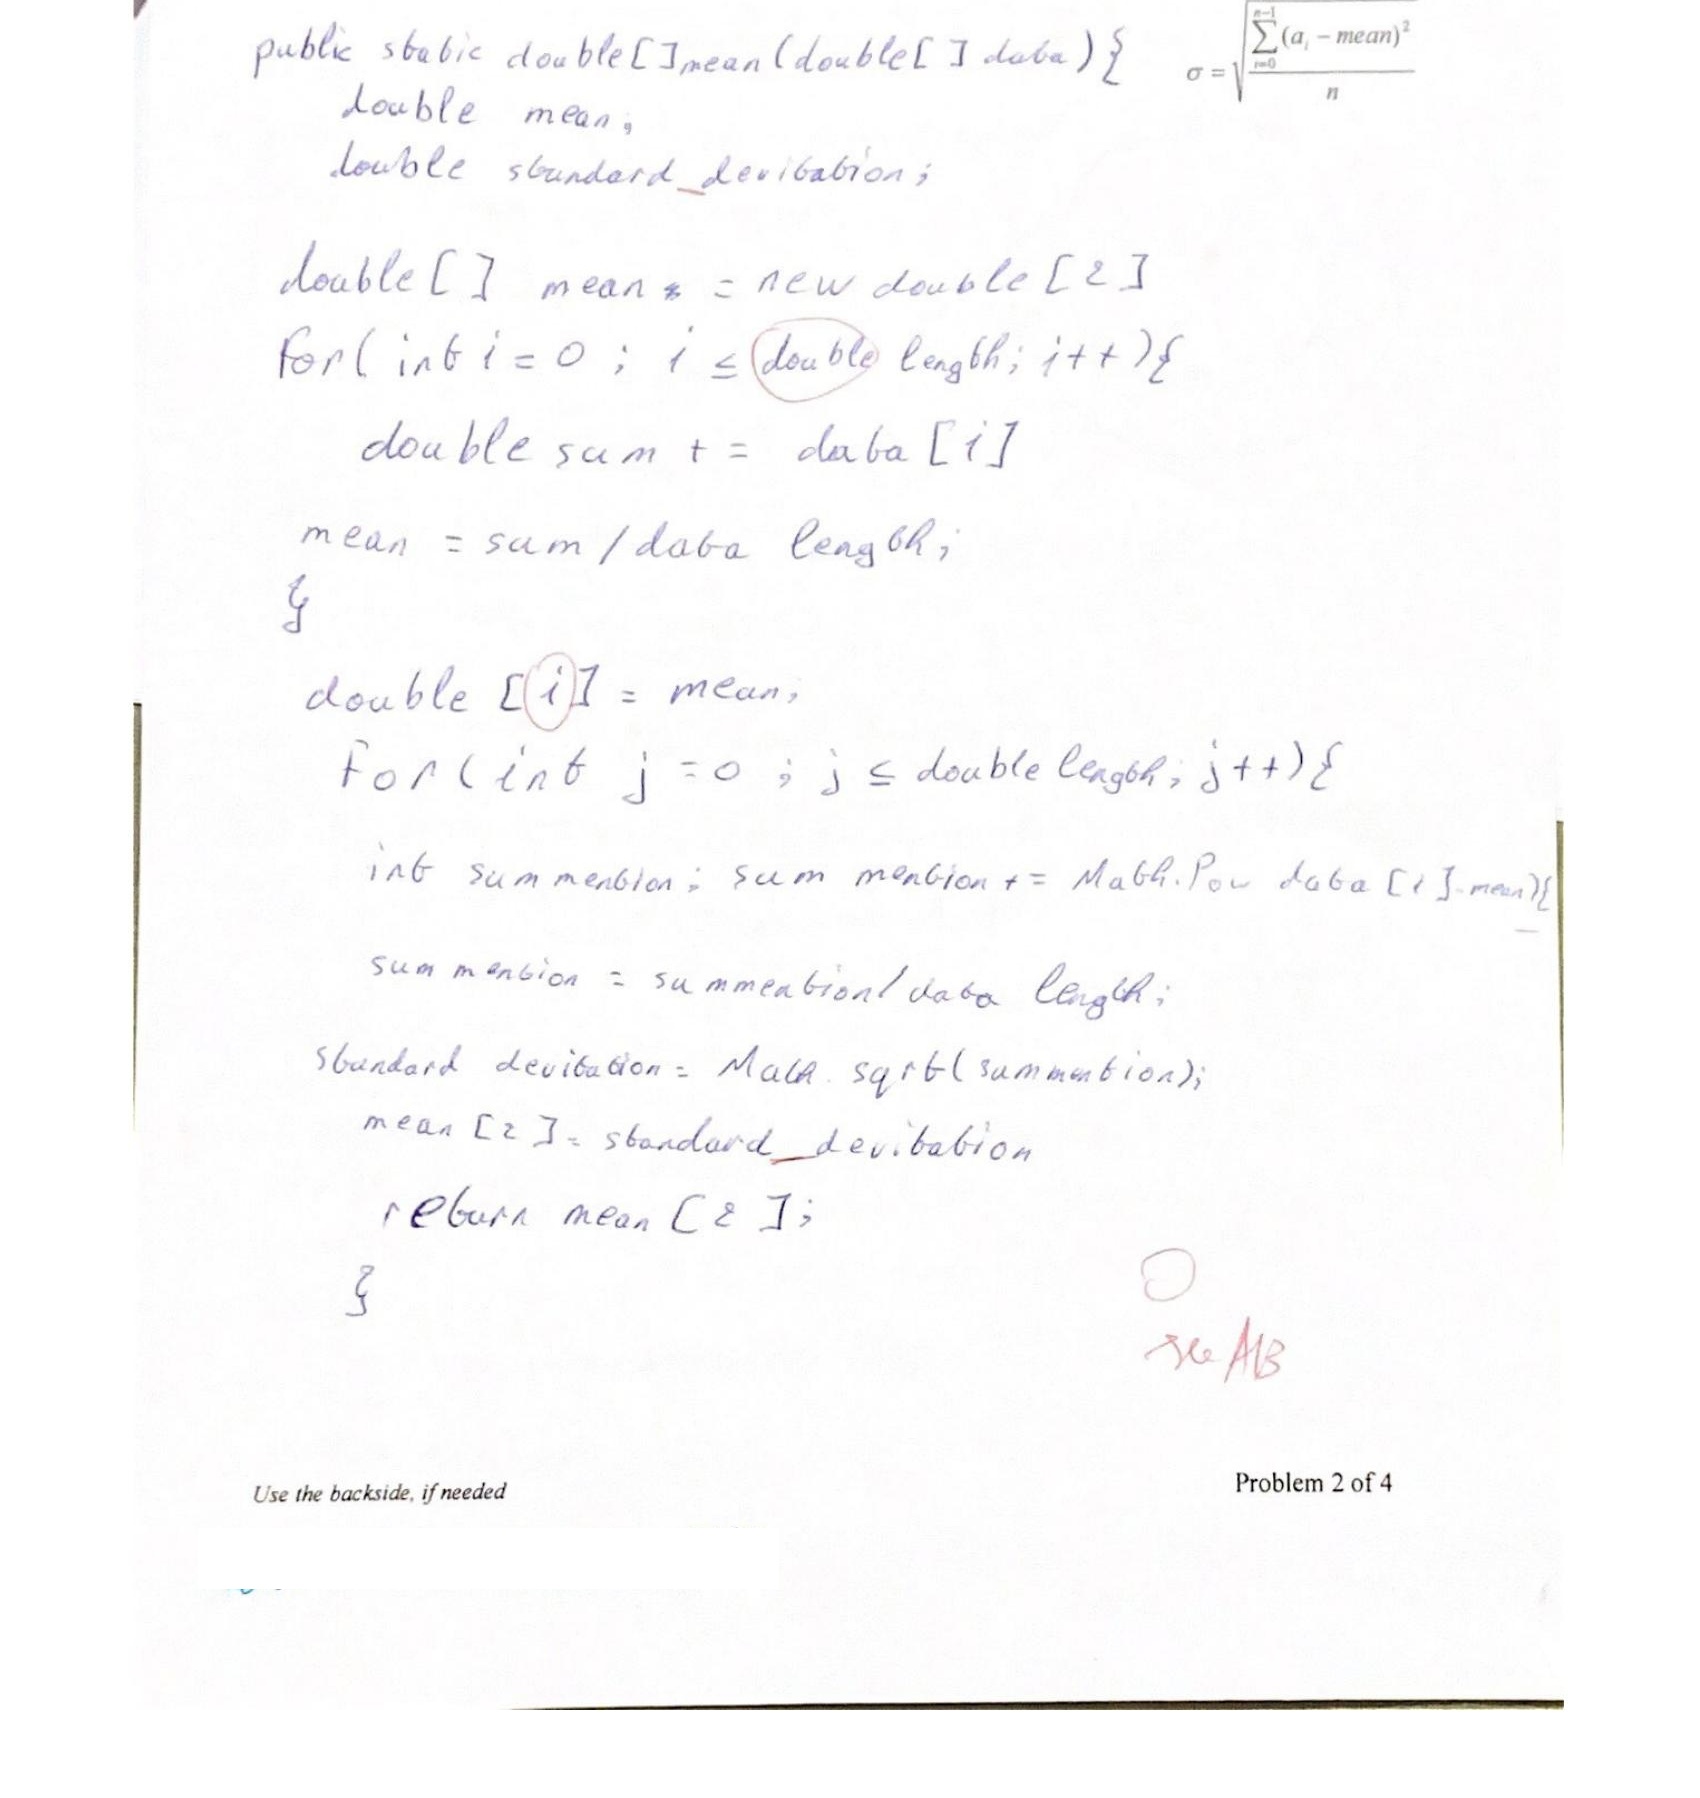 public static double[] mean(double[] data){
σ = √ Σ (a_i - mean)² / n
n-1
i=0
double mean;
double standard_devitation;
double[] mean = new double[2]
for(int i=0; i ≤ double length; i++){
double sum += data[i]
mean = sum/data length;
}
double [i] = mean;
for(int j=0; j ≤ double length; j++){
int summention; summention += Math.Pow data[i]-mean){
summention = summention/data length;
standard devitation = Math.sqrt(summention);
mean[2] = standard_devitation
return mean[2];
}
0
see AB
Use the backside, if needed
Problem 2 of 4